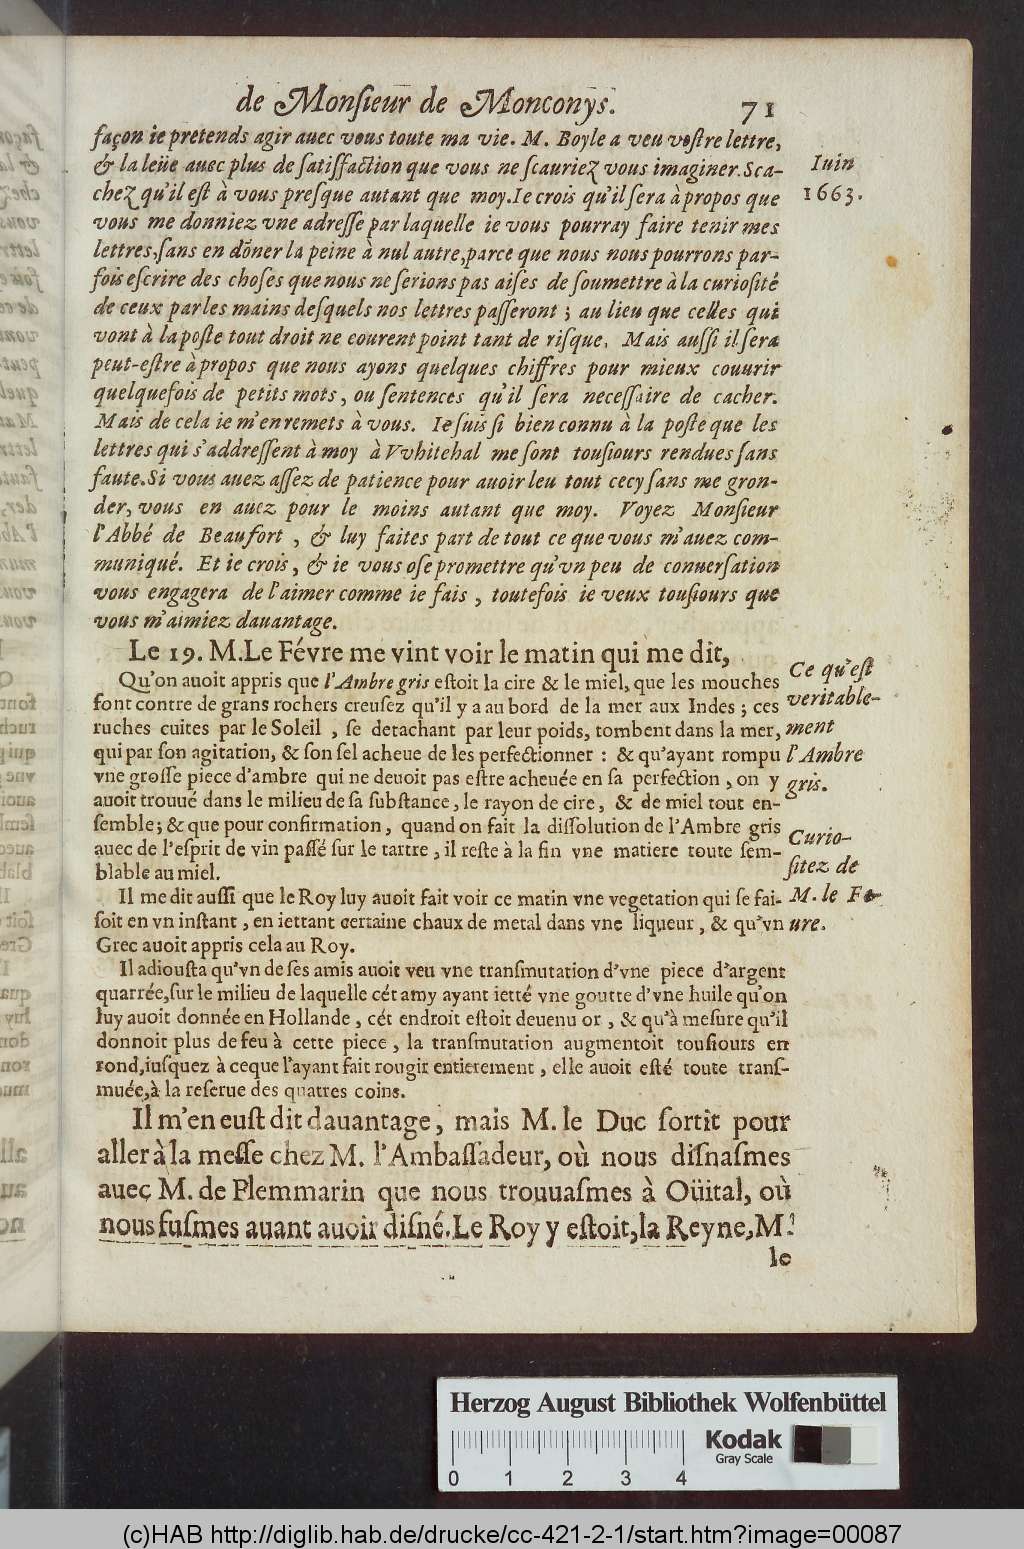 de Monſieur de Monconys. 71
façon ie pretends agir auec vous toute ma vie. M. Boyle a veu voſtre lettre,
& la leüe auec plus de ſatiſfaction que vous ne ſcauriez vous imaginer. Sca-
chez qu'il eſt à vous preſque autant que moy. Ie crois qu'il ſera à propos que
vous me donniez vne adreſſe par laquelle ie vous pourray faire tenir mes
lettres, ſans en dõner la peine à nul autre, parce que nous nous pourrons par-
fois eſcrire des choſes que nous ne ſerions pas aiſes de ſoumettre à la curioſité
de ceux par les mains deſquels nos lettres paſſeront ; au lieu que celles qui
vont à la poſte tout droit ne courent point tant de riſque. Mais auſſi il ſera
peut-eſtre à propos que nous ayons quelques chiffres pour mieux couurir
quelquefois de petits mots, ou ſentences qu'il ſera neceſſaire de cacher.
Mais de cela ie m'en remets à vous. Ie ſuis ſi bien connu à la poſte que les
lettres qui s'addreſſent à moy à Vvhitehal me ſont touſiours rendues ſans
faute. Si vous auez aſſez de patience pour auoir leu tout cecy ſans me gron-
der, vous en auez pour le moins autant que moy. Voyez Monſieur
l'Abbé de Beaufort, & luy faites part de tout ce que vous m'auez com-
muniqué. Et ie crois, & ie vous oſe promettre qu'vn peu de conuerſation
vous engagera de l'aimer comme ie fais, toutefois ie veux touſiours que
vous m'aimiez dauantage.
Iuin
1663.
Le 19. M. Le Févre me vint voir le matin qui me dit,
Qu'on auoit appris que l'Ambre gris eſtoit la cire & le miel, que les mouches
font contre de grans rochers creuſez qu'il y a au bord de la mer aux Indes ; ces
ruches cuites par le Soleil, ſe detachant par leur poids, tombent dans la mer,
qui par ſon agitation, & ſon ſel acheue de les perfectionner : & qu'ayant rompu
vne groſſe piece d'ambre qui ne deuoit pas eſtre acheuée en ſa perfection, on y
auoit trouué dans le milieu de ſa ſubſtance, le rayon de cire, & de miel tout en-
ſemble ; & que pour confirmation, quand on fait la diſſolution de l'Ambre gris
auec de l'eſprit de vin paſſé ſur le tartre, il reſte à la fin vne matiere toute ſem-
blable au miel.
Ce qu'eſt
veritable-
ment
l'Ambre
gris.
Il me dit auſſi que le Roy luy auoit fait voir ce matin vne vegetation qui ſe fai-
ſoit en vn inſtant, en iettant certaine chaux de metal dans vne liqueur, & qu'vn
Grec auoit appris cela au Roy.
Curio-
ſitez de
M. le Fe-
ure.
Il adiouſta qu'vn de ſes amis auoit veu vne tranſmutation d'vne piece d'argent
quarrée, ſur le milieu de laquelle cét amy ayant ietté vne goutte d'vne huile qu'on
luy auoit donnée en Hollande, cét endroit eſtoit deuenu or, & qu'à meſure qu'il
donnoit plus de feu à cette piece, la tranſmutation augmentoit touſiours en
rond, iuſquez à ceque l'ayant fait rougir entierement, elle auoit eſté toute tranſ-
muée, à la reſerue des quatres coins.
Il m'en euſt dit dauantage, mais M. le Duc ſortit pour
aller à la meſſe chez M. l'Ambaſſadeur, où nous diſnaſmes
auec M. de Plemmarin que nous trouuaſmes à Oüital, où
nous fuſmes auant auoir diſné. Le Roy y eſtoit, la Reyne, M.
le
Herzog August Bibliothek Wolfenbüttel
Kodak
Gray Scale
0 1 2 3 4
(c)HAB http://diglib.hab.de/drucke/cc-421-2-1/start.htm?image=00087